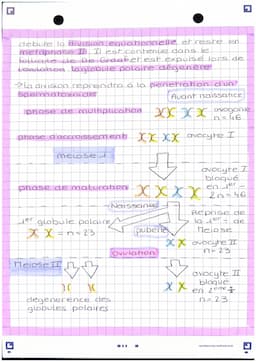 débute la division équationnelle et reste en
métaphase II. Il est contenue dans le
follicule de De Graaf et est expulsé lors de
l'ovulation. Le globule polaire dégénère
La division reprendra à la pénétration d'un
spermatozoïde
Avant naissance
phase de multiplication
ovogonie
n=46
phase d'accroissement
ovocyte I
meiose I
ovocyte I
bloqué
phase de maturation
en 1ère
2n=46
Naissance
1er globule polaire
Reprise de
la 1ère = de
n=23
puberté
Meiose
ovocyte II
n=23
Ovulation
Meiose II
ovocyte II
bloqué
en 2ème
n=23
dégénérence des
globules polaires